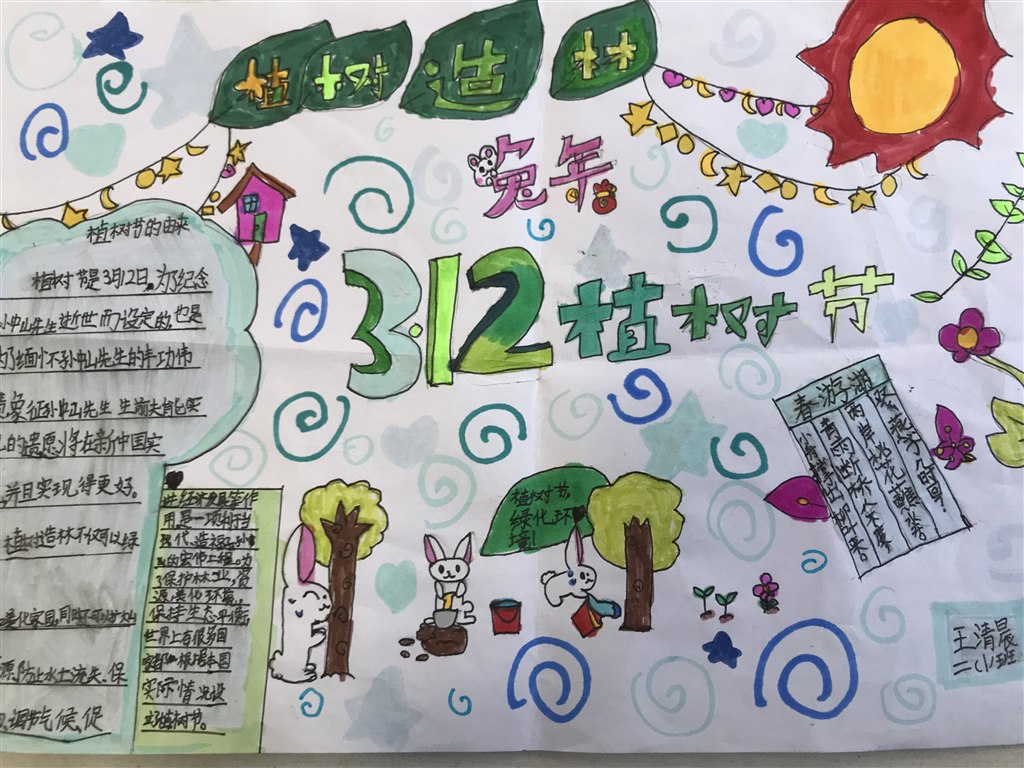 植树造林
兔年
3.12植树节
植树节的由来
植树节是3月12日。为纪念
孙中山先生逝世而设定的,也是
为缅怀孙中山先生的丰功伟
绩,象征孙中山先生生前未能实
的遗愿将在新中国实
并且实现得更好。
植树造林不仅可以绿
化家园,同时
源防止水土流失、保
调节气候,促
进经济发展等作
用,是一项利于当
现代、造福
的宏伟工程。为
了保护林业,资
源,美化环境,
保持生态平衡,
世界上有很多国
家都一根据本国
实际情况设
立植树节。
植树节,
绿化环
境!
春游湖
双飞燕子几时回?
夹岸桃花蘸水开。
春雨断桥人不度,
小舟撑出柳阴来。
王清晨
二(1)班